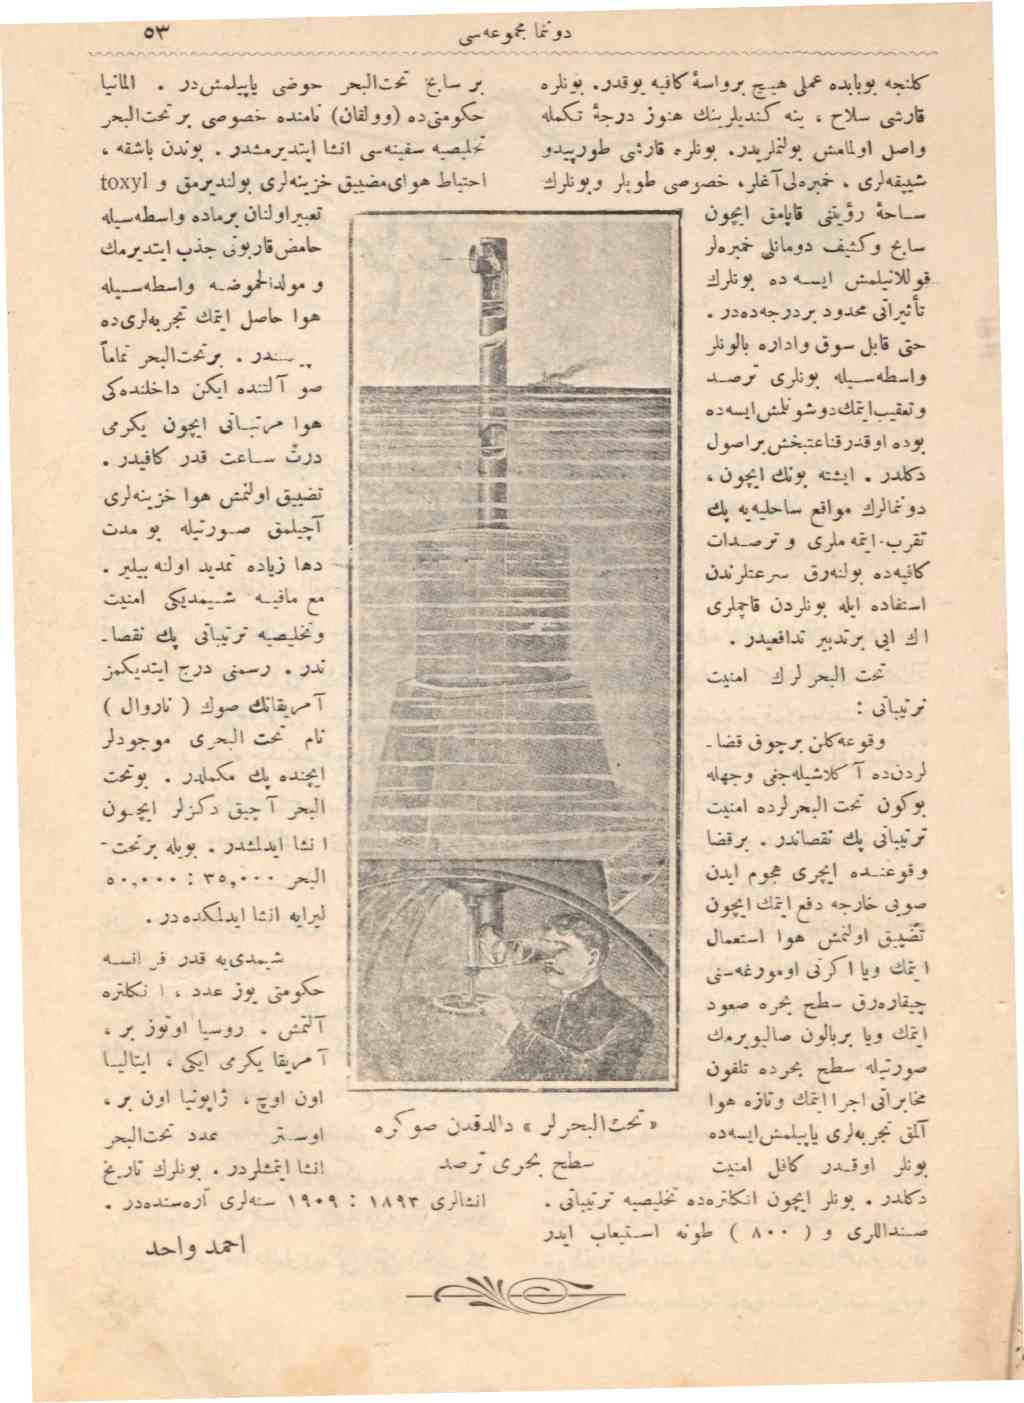 دوننما مجموعه‌سی
٥٣
كلنجه بوبابده عملی هیچ برواسطهٔ كافیه یوقدر. بونلره
قارشی سلاح ، ینه كندیلرینك هنوز درجهٔ تكمله
واصل اولمامش بولنملریدر. بونلره قارشی طورپیدو
شبیقه‌لری . خمبره‌لی آغلر، خصوصی طوپلر وبونلرك
ساحهٔ رؤیتنی قاپامق ایچون
سابح وكثیف دومانلی خمبره‌لر
قوللانیلمش ایسه ده بونلرك
تأثیراتی محدود بردرجه‌ده‌در .
حتی قابل سوق واداره بالونلر
واسطه‌سیله بونلری ترصد
وتعقیب‌ایتمك‌دوشونلمش‌ایسه‌ده
بوده اوقدرقناعتبخش‌براصول
دكلدر . ایشته بونك ایچون ،
دوننمالرك مواقع ساحلیه‌یه پك
تقرب‌ ایتمه‌ملری و ترصدات
كافیه‌ده بولنه‌رق سرعتلرندن
استفاده ایله بونلردن قاچملری
اك ایی برتدبیر تدافعیدر .
تحت البحرلرك امنیت
ترتیباتی :
وقوعه‌كلن برچوق قضا-
لردن‌ده آكلاشیله‌جغی وجهله
بوكون تحت البحرلرده امنیت
ترتیباتی پك نقصاندر . برقضا
وقوعنده ایچری هجوم ایدن
صویی خارجه دفع ایتمك ایچون
تضییق اولنمش هوا استعمال
ایتمك ویا اكرتی اومورغه‌سنی
چیقاره‌رق سطح بحره صعود
ایتمك ویا بربالون صالیویرمك
صورتیله سطح بحرده تلفون
مخابراتی اجرا ایتمك وتازه هوا
آلمق تجربه‌لری یاپیلمش‌ایسه‌ده
بونلر اوقدر كافل امنیت
دكلدر . بونلر ایچون انكلتره‌ده تخلیصیه ترتیباتی .
صنداللری و ( ٨٠٠ ) طونه استیعاب ایدر
بر سابح تحت‌البحر حوضی یاپیلمش‌در . المانیا
حكومتی‌ده (وولقان) نامنده خصوصی بر تحت‌البحر
تخلیصیه سفینه‌سی انشا ایتدیرمشدر . بوندن باشقه ،
احتیاط هوای‌مضیق خزینه‌لری بولندیرمق و toxyl
تعبیراولنان برماده واسطه‌سیله
حامض‌قاربونی جذب ایتدیرمك
و مولدالحموضه واسطه‌سیله
هوا حاصل ایتمك تجربه‌لری‌ده
. برتحت‌البحر تماماً
صو آلتنده ایكن داخلنده‌كی
هوا مرتباتی ایچون یكرمی
درت ساعت قدر كافیدر .
تضییق اولنمش هوا خزینه‌لری
آچیلمق صورتیله بو مدت
دها زیاده تمدید اولنه بیلیر .
مع مافیه شیمدیكی امنیت
وتخلیصیه ترتیباتی پك نقصا-
ندر . رسمنی درج ایتدیكمز
آمریقانك صوك ( ناروال )
نام تحت البحری موجودلر
ایچنده پك مكملدر . بوتحت
البحر آچیق دكزلر ایچون
انشا ایدلمشدر . بویله برتحت-
البحر ٣٥,٠٠٠ : ٥٠,٠٠٠
لیرایه انشا ایدلمكده‌در .
شیمدی‌یه قدر فرانسه
حكومتی یوز عدد ، انكلتره
آلتمش . روسیا اوتوز بر ،
آمریقا یكرمی ایكی ، ایتالیا
اون اوچ ، ژاپونیا اون بر ،
عدد تحت‌البحر
انشا ایتمشلردر . بونلرك تاریخ
انشالری ١٨٩٣ : ١٩٠٩ سنه‌لری آره‌سنده‌در .
احمد واحد
« تحت‌البحرلر » دالدقدن صوكره
سطح بحری ترصد